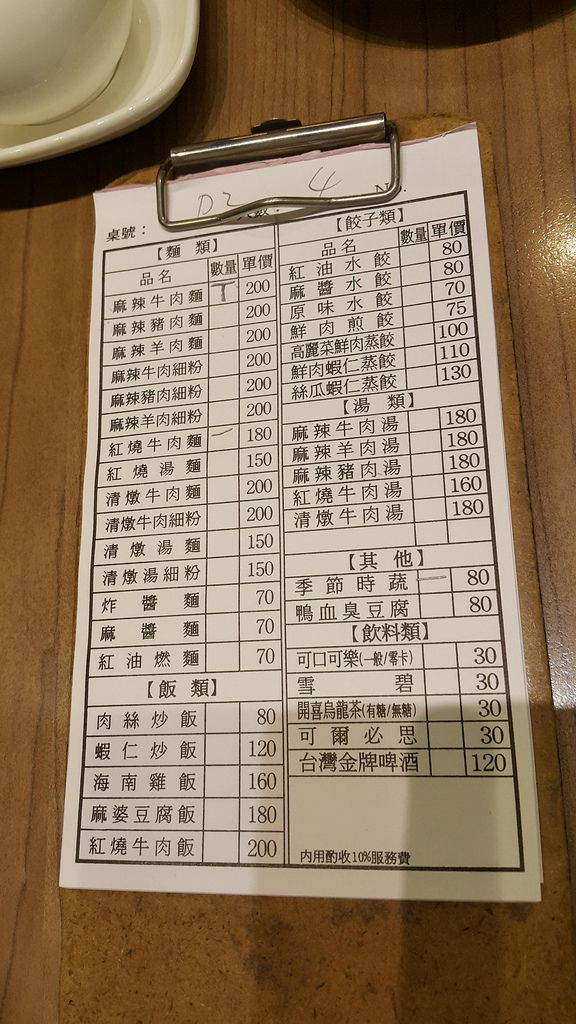 D2 4 No.
桌號：
【麵 類】
品名 數量 單價
麻辣牛肉麵 T 200
麻辣豬肉麵 200
麻辣羊肉麵 200
麻辣牛肉細粉 200
麻辣豬肉細粉 200
麻辣羊肉細粉 200
紅燒牛肉麵 一 180
紅燒湯麵 150
清燉牛肉麵 200
清燉牛肉細粉 200
清燉湯麵 150
清燉湯細粉 150
炸醬麵 70
麻醬麵 70
紅油燃麵 70
【飯 類】
肉絲炒飯 80
蝦仁炒飯 120
海南雞飯 160
麻婆豆腐飯 180
紅燒牛肉飯 200
【餃子類】
品名 數量 單價
紅油水餃 80
麻醬水餃 80
原味水餃 70
鮮肉煎餃 75
高麗菜鮮肉蒸餃 100
鮮肉蝦仁蒸餃 110
絲瓜蝦仁蒸餃 130
【湯 類】
麻辣牛肉湯 180
麻辣羊肉湯 180
麻辣豬肉湯 180
紅燒牛肉湯 160
清燉牛肉湯 180
【其 他】
季節時蔬 一 80
鴨血臭豆腐 80
【飲料類】
可口可樂(一般/零卡) 30
雪碧 30
開喜烏龍茶(有糖/無糖) 30
可爾必思 30
台灣金牌啤酒 120
內用酌收10%服務費